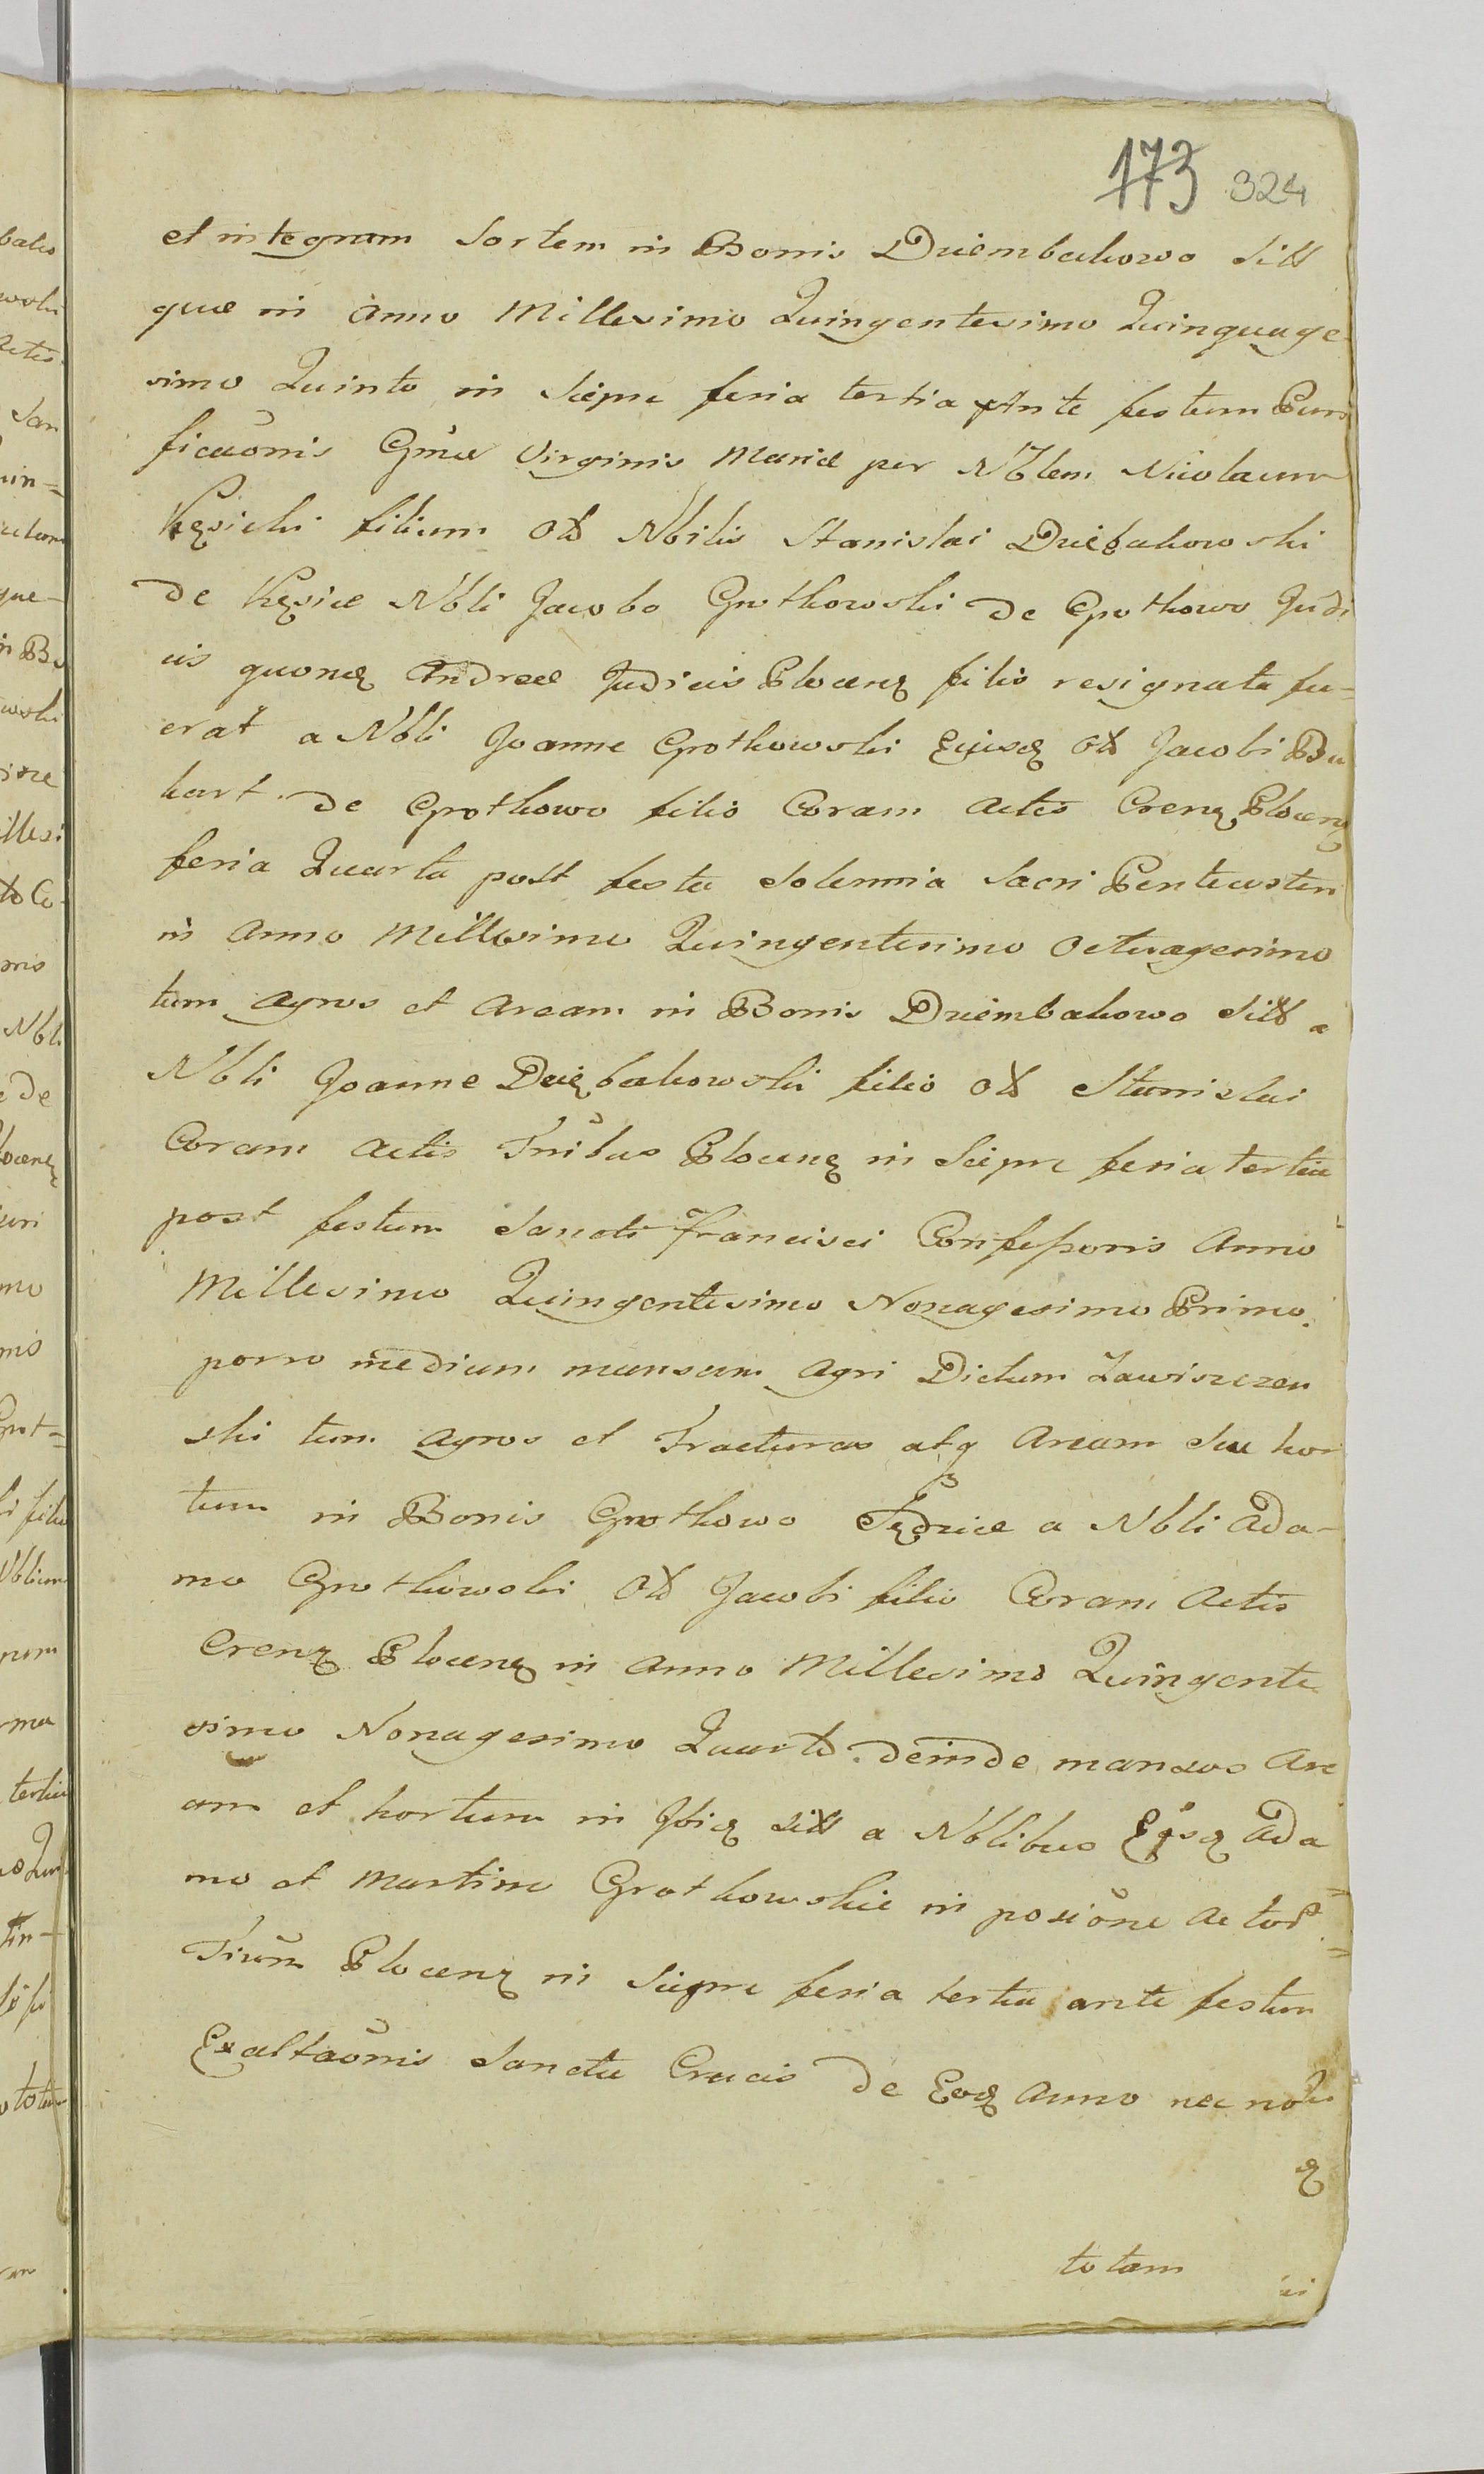 173 324
et integram Sortem in Bonis Dziembakowo Sitt
quæ in Anno Millesimo Quingentesimo Quinquage
simo Quinto in Sieprc feria tertia Ante festum Puri
ficaõnis Gmæ Virginis Mariæ per Nblem Nicolaum
Kęsicki filium Old Nbilis Stanislai Dziębakowski
de Kęsice Nbli Jacobo Grothowski de Grothowo Judi
cis quonđ Andreæ Judicis Plocenđ filio resignata fu-
erat a Nbli Joanne Grothowski Ejusđ Old Jacobi Bu
kart de Grothowo filio Coram Actis Crenđ Plocenđ
feria Quarta post festa Solennia Sacri Pentecosten
in Anno Millesimo Quingentesimo Octuagesimo
tum Agros et Aream in Bonis Dziembakowo Sitt a
Nbli Joanne Dziębakowski filio Old Stanislai
Coram Actis Tribus Plocenđ in Sieprc feria tertia
post festum Sancti Francisci Confessoris Anno
Millesimo Quingentesimo Nonagesimo Primo.
porro medium mansum Agri Dictum Zawiszczen
ski tum Agros et Fracturas atq Aream Seu hor
tum in Bonis Grothowo Jędrice a Nbli Ada-
mo Grothowski Old Jacobi filio Coram Actis
Crenđ Plocenđ in Anno Millesimo Quingente
simo Nonagesimo Quarto. deinde mansos Are
am et hortum in Ibiđ Sitt a Nblibus Ejusđ Ada
mo et Martino Grothowskie in posiõne Actor
Trium Plocenđ in Sieprc feria tertia ante festum
Exaltaõnis Sanctæ Crucis de Eođ Anno nec non
totam